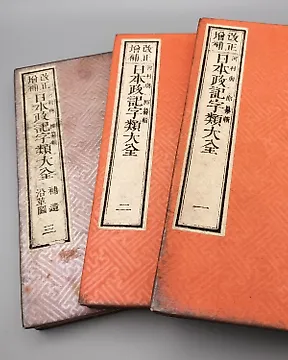 改正
增補
日本政記字類大全
一
改正
增補
日本政記字類大全
二
改正
增補
日本政記字類大全
補遺
沿革圖
三